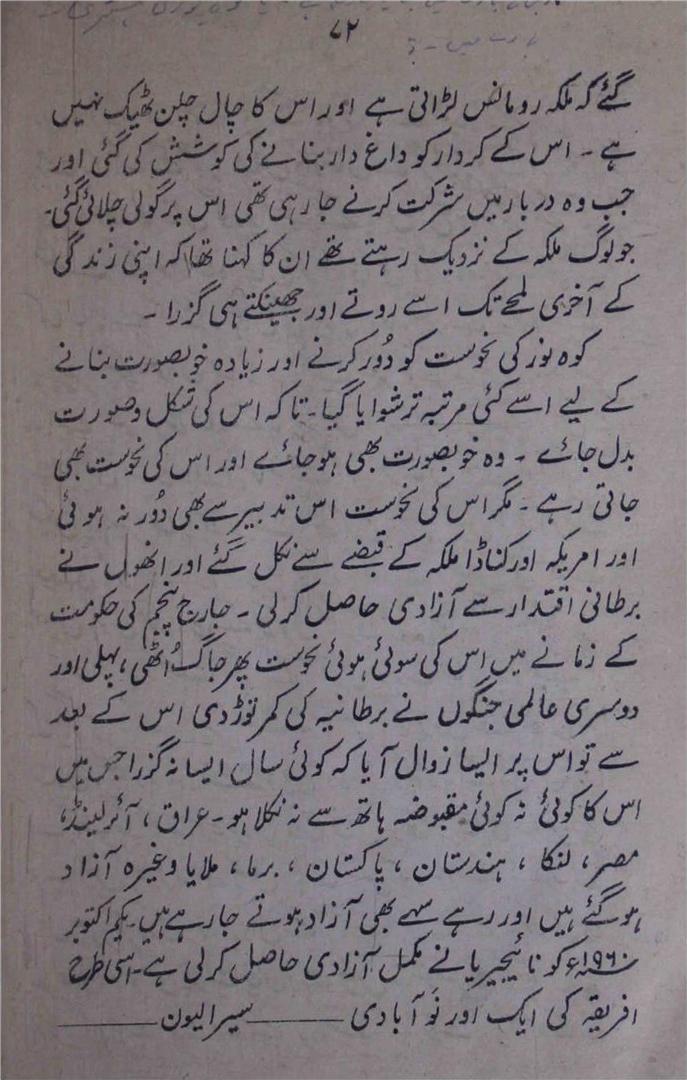 ۷۲
گئے کہ ملکہ رومانس لڑاتی ہے اور اس کا چال چلن ٹھیک نہیں
ہے ۔ اس کے کردار کو داغ دار بنانے کی کوشش کی گئی اور
جب وہ دربار میں شرکت کرنے جا رہی تھی اس پر گولی چلائی گئی۔
جو لوگ ملکہ کے نزدیک رہتے تھے ان کا کہنا تھا کہ اپنی زندگی
کے آخری لمحے تک اسے روتے اور جھینکتے ہی گزرا ۔
کوہ نور کی نحوست کو دُور کرنے اور زیادہ خوبصورت بنانے
کے لیے اسے کئی مرتبہ ترشوایا گیا۔ تاکہ اس کی شکل و صورت
بدل جائے ۔ وہ خوبصورت بھی ہو جائے اور اس کی نحوست بھی
جاتی رہے ۔ مگر اس کی نحوست اس تدبیر سے بھی دُور نہ ہوئی
اور امریکہ اور کناڈا ملکہ کے قبضے سے نکل گئے اور انھوں نے
برطانی اقتدار سے آزادی حاصل کر لی ۔ جارج پنجم کی حکومت
کے زمانے میں اس کی سوئی ہوئی نحوست پھر جاگ اُٹھی، پہلی اور
دوسری عالمی جنگوں نے برطانیہ کی کمر توڑ دی اس کے بعد
سے تو اس پر ایسا زوال آیا کہ کوئی سال ایسا نہ گزرا جس میں
اس کا کوئی نہ کوئی مقبوضہ ہاتھ سے نہ نکلا ہو ۔ عراق ، آئرلینڈ،
مصر، لنکا ، ہندستان ، پاکستان ، برما ، ملایا وغیرہ آزاد
ہو گئے ہیں اور رہے سہے بھی آزاد ہوتے جا رہے ہیں۔ یکم اکتوبر
۱۹۶۰ء کو نائیجیریا نے مکمل آزادی حاصل کر لی ہے۔ اسی طرح
افریقہ کی ایک اور نَو آبادی ——— سیرالیون ———